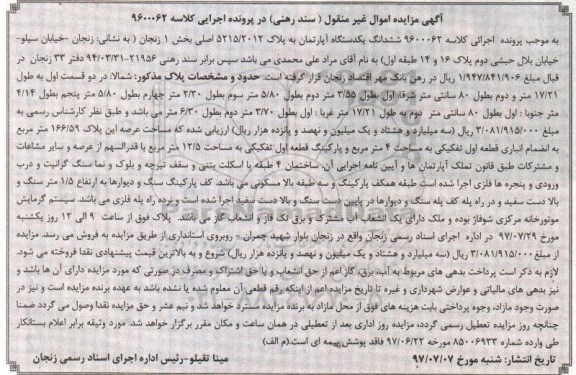 آگهی مزایده اموال غیر منقول ( سند رهنی) در پرونده اجرایی کلاسه ۹۶۰۰۰۶۲
به موجب پرونده اجرائی کلاسه ۹۶۰۰۰۶۲ ششدانگ یکدستگاه آپارتمان به پلاک ۵۲۱۵/۲۰۱۲ اصلی بخش ۱ زنجان ( به نشانی: زنجان -خیابان سیلو-
خیابان بلال حبشی دوم پلاک ۱۶ و ۱۴ طبقه اول) به نام آقای مراد علی محمدی می باشد سپس برابر سند رهنی ۲۱۹۵۶-۹۴/۰۳/۳۱ دفتر ۳۳ زنجان در
قبال مبلغ ۱/۹۴۷/۸۴۱/۹۰۶ ریال در رهن بانک مهر اقتصاد زنجان قرار گرفته است. حدود و مشخصات پلاک مذکور: شمالا: در دو قسمت اول به طول
۱۷/۲۱ متر و دوم بطول ۸۰ سانتی متر شرقا: اول بطول ۳/۵۵ متر دوم بطول ۵/۸۰ متر سوم بطول ۲/۳۰ متر چهارم بطول ۵/۸۰ متر پنجم بطول ۴/۱۴
متر جنوبا : اول بطول ۸۰ سانتی متر دوم به طول ۱۷/۲۱ متر غربا : اول بطول ۳/۷۰ متر دوم بطول ۶/۳۰ متر می باشد و طبق نظر کارشناس رسمی به
مبلغ ۳/۰۸۱/۹۱۵/۰۰۰ ریال (سه میلیارد و هشتاد و یک میلیون و نهصد و پانزده هزار ریال) ارزیابی شده که مساحت عرصه این پلاک ۱۶۶/۵۹ متر مربع
به انضمام انباری قطعه اول تفکیکی به مساحت ۴ متر مربع و پارکینگ قطعه اول تفکیکی به مساحت ۱۲/۵ متر مربع با قدرالسهم از عرصه و سایر مشاعات
و مشترکات طبق قانون تملک آپارتمان ها و آیین نامه اجرایی آن- ساختمان ۴ طبقه با اسکلت بتنی و سقف تیرچه و بلوک و نما سنگ گرانیت و درب
ورودی و پنجره ها فلزی اجرا شده است طبقه همکف پارکینگ و سه طبقه بالا مسکونی می باشد. کف پارکینگ سنگ و دیوارها به ارتفاع ۱/۵ متر سنگ و
بالا دست سفید و در راه پله کف پله سنگ و دیوارها در پایین دست سنگ و بالا دست سفید اجرا شده است و نرده راه پله فلزی می باشد. سیستم گرمایش
موتورخانه مرکزی شوفاژ بوده و ملک دارای یک انشعاب آب مشترک و برق تک فاز و انشعاب گاز می باشد. پلاک فوق از ساعت ۹ الی ۱۲ روز یکشنبه
مورخ ۹۷/۰۷/۲۹ در اداره اجرای اسناد رسمی زنجان واقع در زنجان بلوار شهید چمران - روبروی استانداری از طریق مزایده به فروش می رسد. مزایده
از مبلغ ۳/۰۸۱/۹۱۵/۰۰۰ ریال (سه میلیارد و هشتاد و یک میلیون و نهصد و پانزده هزار ریال) شروع و به بالاترین قیمت پیشنهادی نقدا فروخته می شود.
لازم به ذکر است پرداخت بدهی های مربوط به آب، برق، گاز اعم از حق انشعاب و یا حق اشتراک و مصرف در صورتی که مورد مزایده دارای آن ها باشد و
نیز بدهی های مالیاتی و عوارض شهرداری و غیره تا تاریخ مزایده اعم از اینکه رقم قطعی آن معلوم شده یا نشده باشد به عهده برنده مزایده است و نیز در
صورت وجود مازاد، وجوه پرداختی بابت هزینه های فوق از محل مازاد به برنده مزایده مسترد خواهد شد و نیم عشر و حق مزایده نقدا وصول می گردد ضمنا
چنانچه روز مزایده تعطیل رسمی گردد، مزایده روز اداری بعد از تعطیلی در همان ساعت و مکان مقرر برگزار خواهد شد. مورد وثیقه برابر اعلام بستانکار
طی وارده شماره ۸۵۰۰۶۹۳۳ مورخه ۹۷/۰۶/۲۲ فاقد پوشش بیمه ای است.(م الف)
تاریخ انتشار: شنبه مورخ ۹۷/۰۷/۰۷
مینا تقیلو-رئیس اداره اجرای اسناد رسمی زنجان